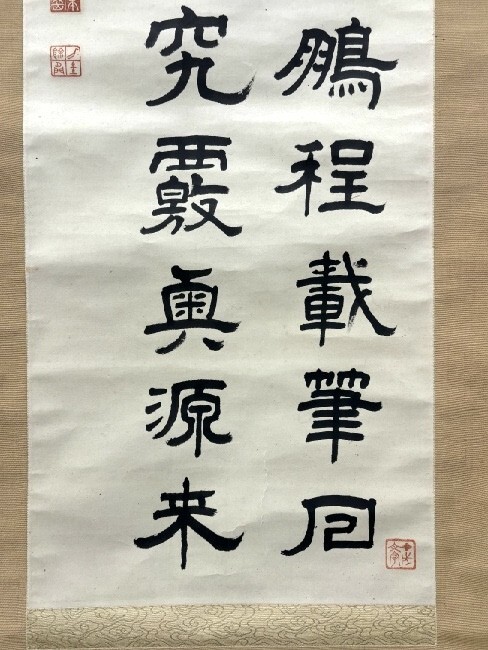 鵬程載筆回
究覈真源来